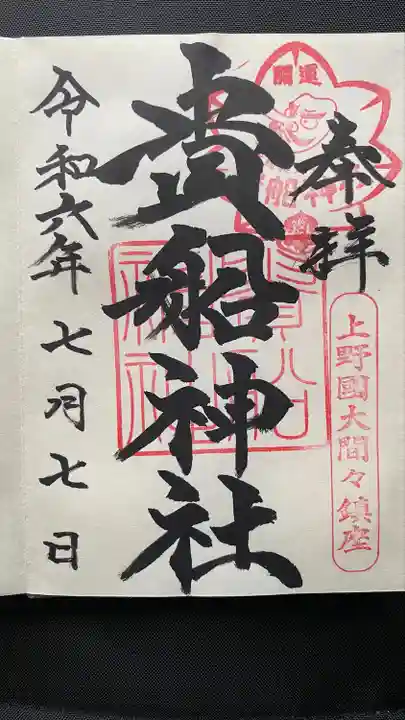 奉拝
開運
貴船神社
上野國大間々鎮座
貴船神社
令和六年七月七日